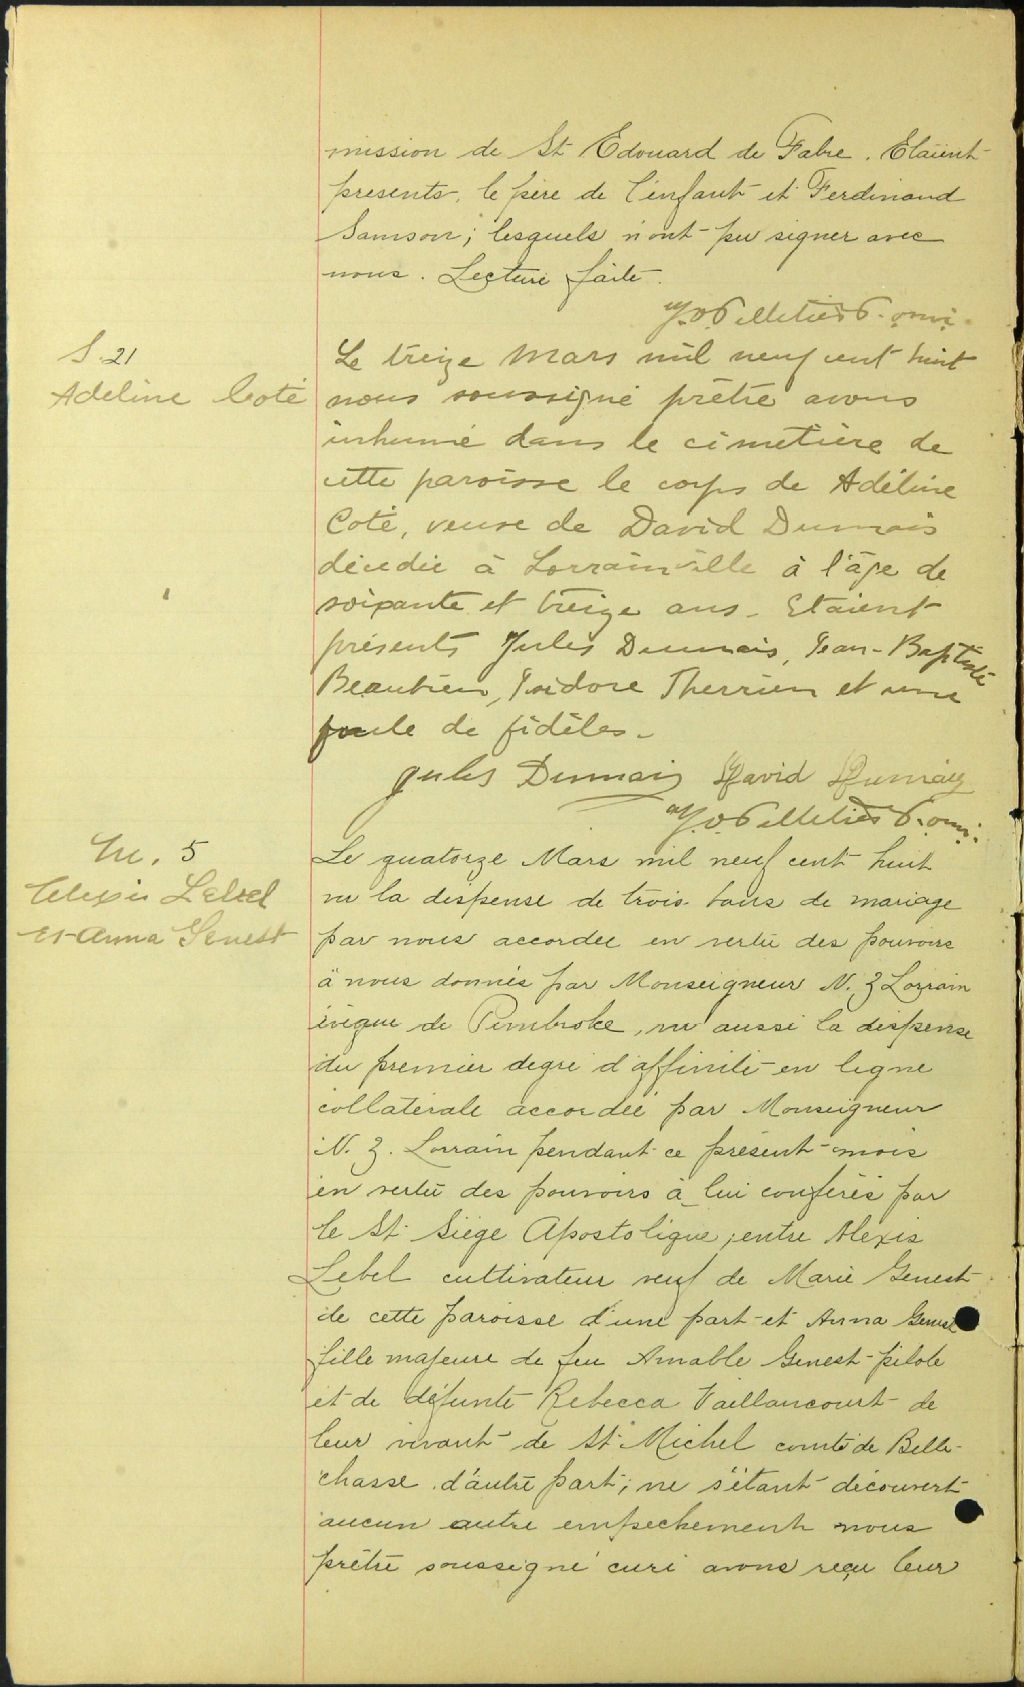 mission de St Edouard de Fabre. Etaient
présents, le père de l'enfant et Ferdinand
Samson; lesquels n'ont pu signer avec
nous. Lecture faite.
J. O. Pelletier P. omi.
S. 21
Adeline Coté
Le treize Mars mil neuf cent huit
nous soussigné prêtre avons
inhumé dans le cimetière de
cette paroisse le corps de Adéline
Coté, veuve de David Dumais
décédée à Lorrainville à l'âge de
soixante et treize ans. Etaient
présents Jules Dumais, Jean-Baptiste
Beaubien, Isidore Therrien et une
foule de fidèles.
Jules Dumais David Dumais
J. O. Pelletier P. omi.
M. 5
Alexis Lebel
et Anna Genest
Le quatorze Mars mil neuf cent huit
vu la dispense de trois bans de mariage
par nous accordée en vertu des pouvoirs
à nous donnés par Monseigneur N. Z Lorrain
évêque de Pembroke, vu aussi la dispense
du premier degré d'affinité en ligne
collatérale accordée par Monseigneur
N. Z. Lorrain pendant ce présent mois
en vertu des pouvoirs à lui conférés par
le St Siège Apostolique, entre Alexis
Lebel cultivateur veuf de Marie Genest
de cette paroisse d'une part et Anna Genest
fille majeure de feu Amable Genest pilote
et de défunte Rebecca Vaillancourt de
leur vivant de St Michel comté de Belle-
chasse d'autre part; ne s'étant découvert
aucun autre empêchement nous
prêtre soussigné curé avons reçu leur